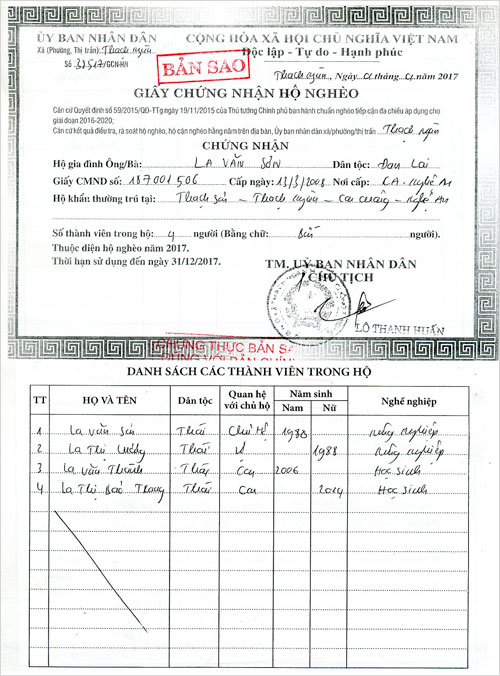 ỦY BAN NHÂN DÂN
Xã (Phường, Thị trấn): Thạch Ngàn
Số /GCN-HN
CỘNG HÒA XÃ HỘI CHỦ NGHĨA VIỆT NAM
Độc lập - Tự do - Hạnh phúc
BẢN SAO
Thạch Ngàn, Ngày 01 tháng 01 năm 2017
GIẤY CHỨNG NHẬN HỘ NGHÈO
Căn cứ Quyết định số 59/2015/QĐ-TTg ngày 19/11/2015 của Thủ tướng Chính phủ ban hành chuẩn nghèo tiếp cận đa chiều áp dụng cho
giai đoạn 2016-2020;
Căn cứ kết quả điều tra, rà soát hộ nghèo, hộ cận nghèo hằng năm trên địa bàn, Ủy ban nhân dân xã/phường/thị trấn Thạch Ngàn
CHỨNG NHẬN
Hộ gia đình Ông/Bà: LA VĂN SƠN Dân tộc: Đan Lai
Giấy CMND số: 187001506 Cấp ngày: 13/3/2008 Nơi cấp: CA - Nghệ An
Hộ khẩu thường trú tại: Thạch Sơn - Thạch Ngàn - Con Cuông - Nghệ An
Số thành viên trong hộ: 4 người (Bằng chữ: Bốn người).
Thuộc diện hộ nghèo năm 2017.
Thời hạn sử dụng đến ngày 31/12/2017.
TM. ỦY BAN NHÂN DÂN
CHỦ TỊCH
LÔ THANH HUẤN
CHỨNG THỰC BẢN SA
ĐÚNG VỚI BẢN CHÍN
DANH SÁCH CÁC THÀNH VIÊN TRONG HỘ
TT HỌ VÀ TÊN Dân tộc Quan hệ với chủ hộ Năm sinh Nam Nữ Nghề nghiệp
1 La Văn Sơn Thái Chủ Hộ 1988 Nông nghiệp
2 La Thị Thái Vợ 1988 Nông nghiệp
3 La Văn Thành Thái Con 2006 Học sinh
4 La Thị Bảo Trang Thái Con Học sinh